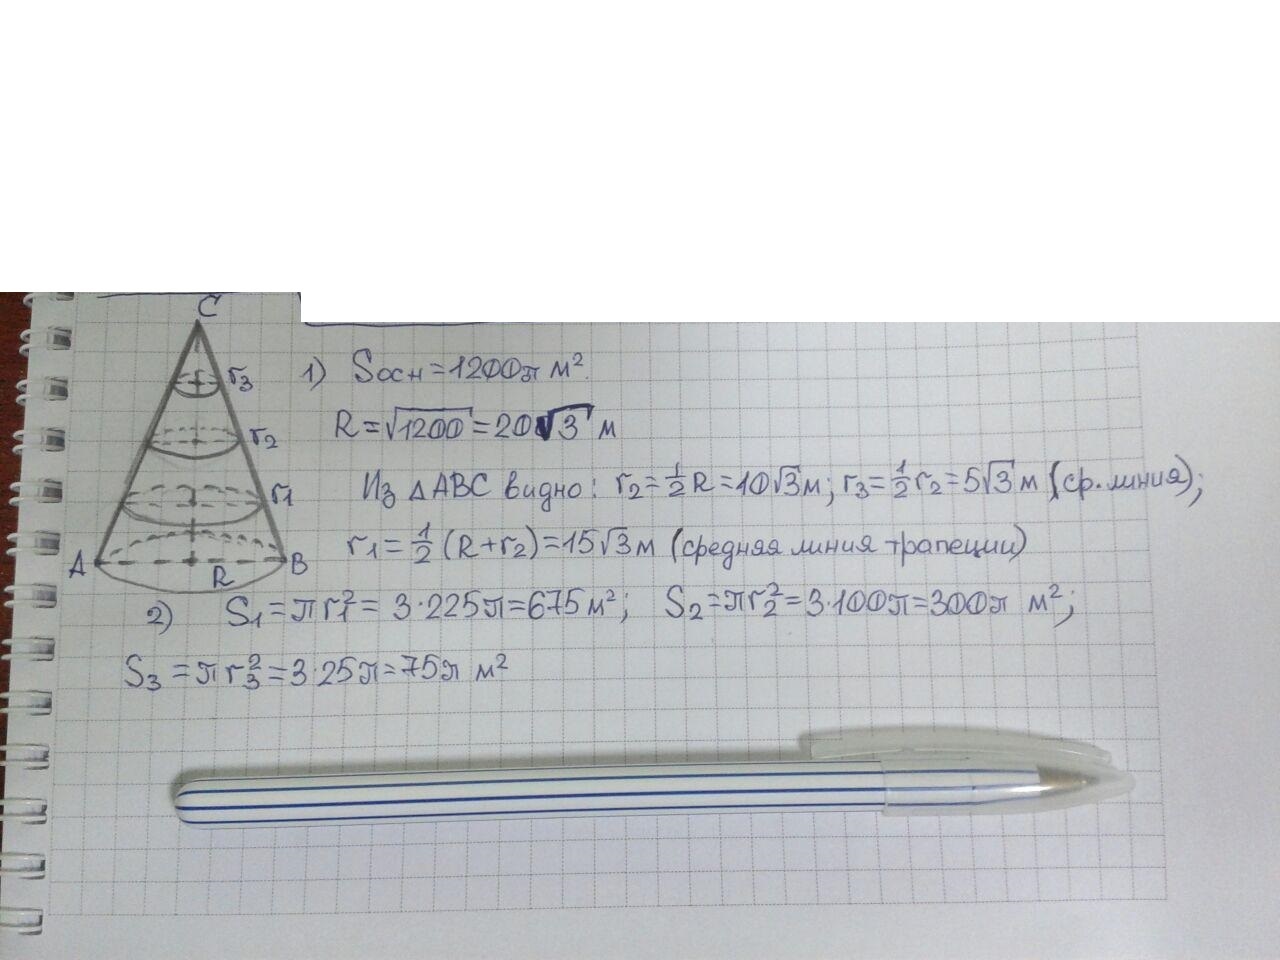 C
r₃
r₂
r₁
A
R
B
1) Sосн = 1200π м².
R = √1200 = 20√3 м
Из △ABC видно: r₂ = ½R = 10√3 м; r₃ = ½r₂ = 5√3 м (ср. линия);
r₁ = ½(R + r₂) = 15√3 м (средняя линия трапеции)
2) S₁ = πr₁² = 3·225π = 675 м²; S₂ = πr₂² = 3·100π = 300π м²;
S₃ = πr₃² = 3·25π = 75π м²